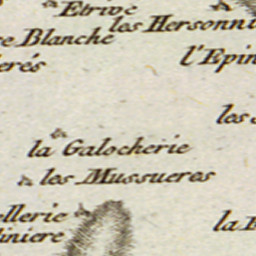 Etrive
les Hersonni
e Blanche
erés
l'Epin
les
la Galocherie
les Mussueres
ellerie
la
iniere